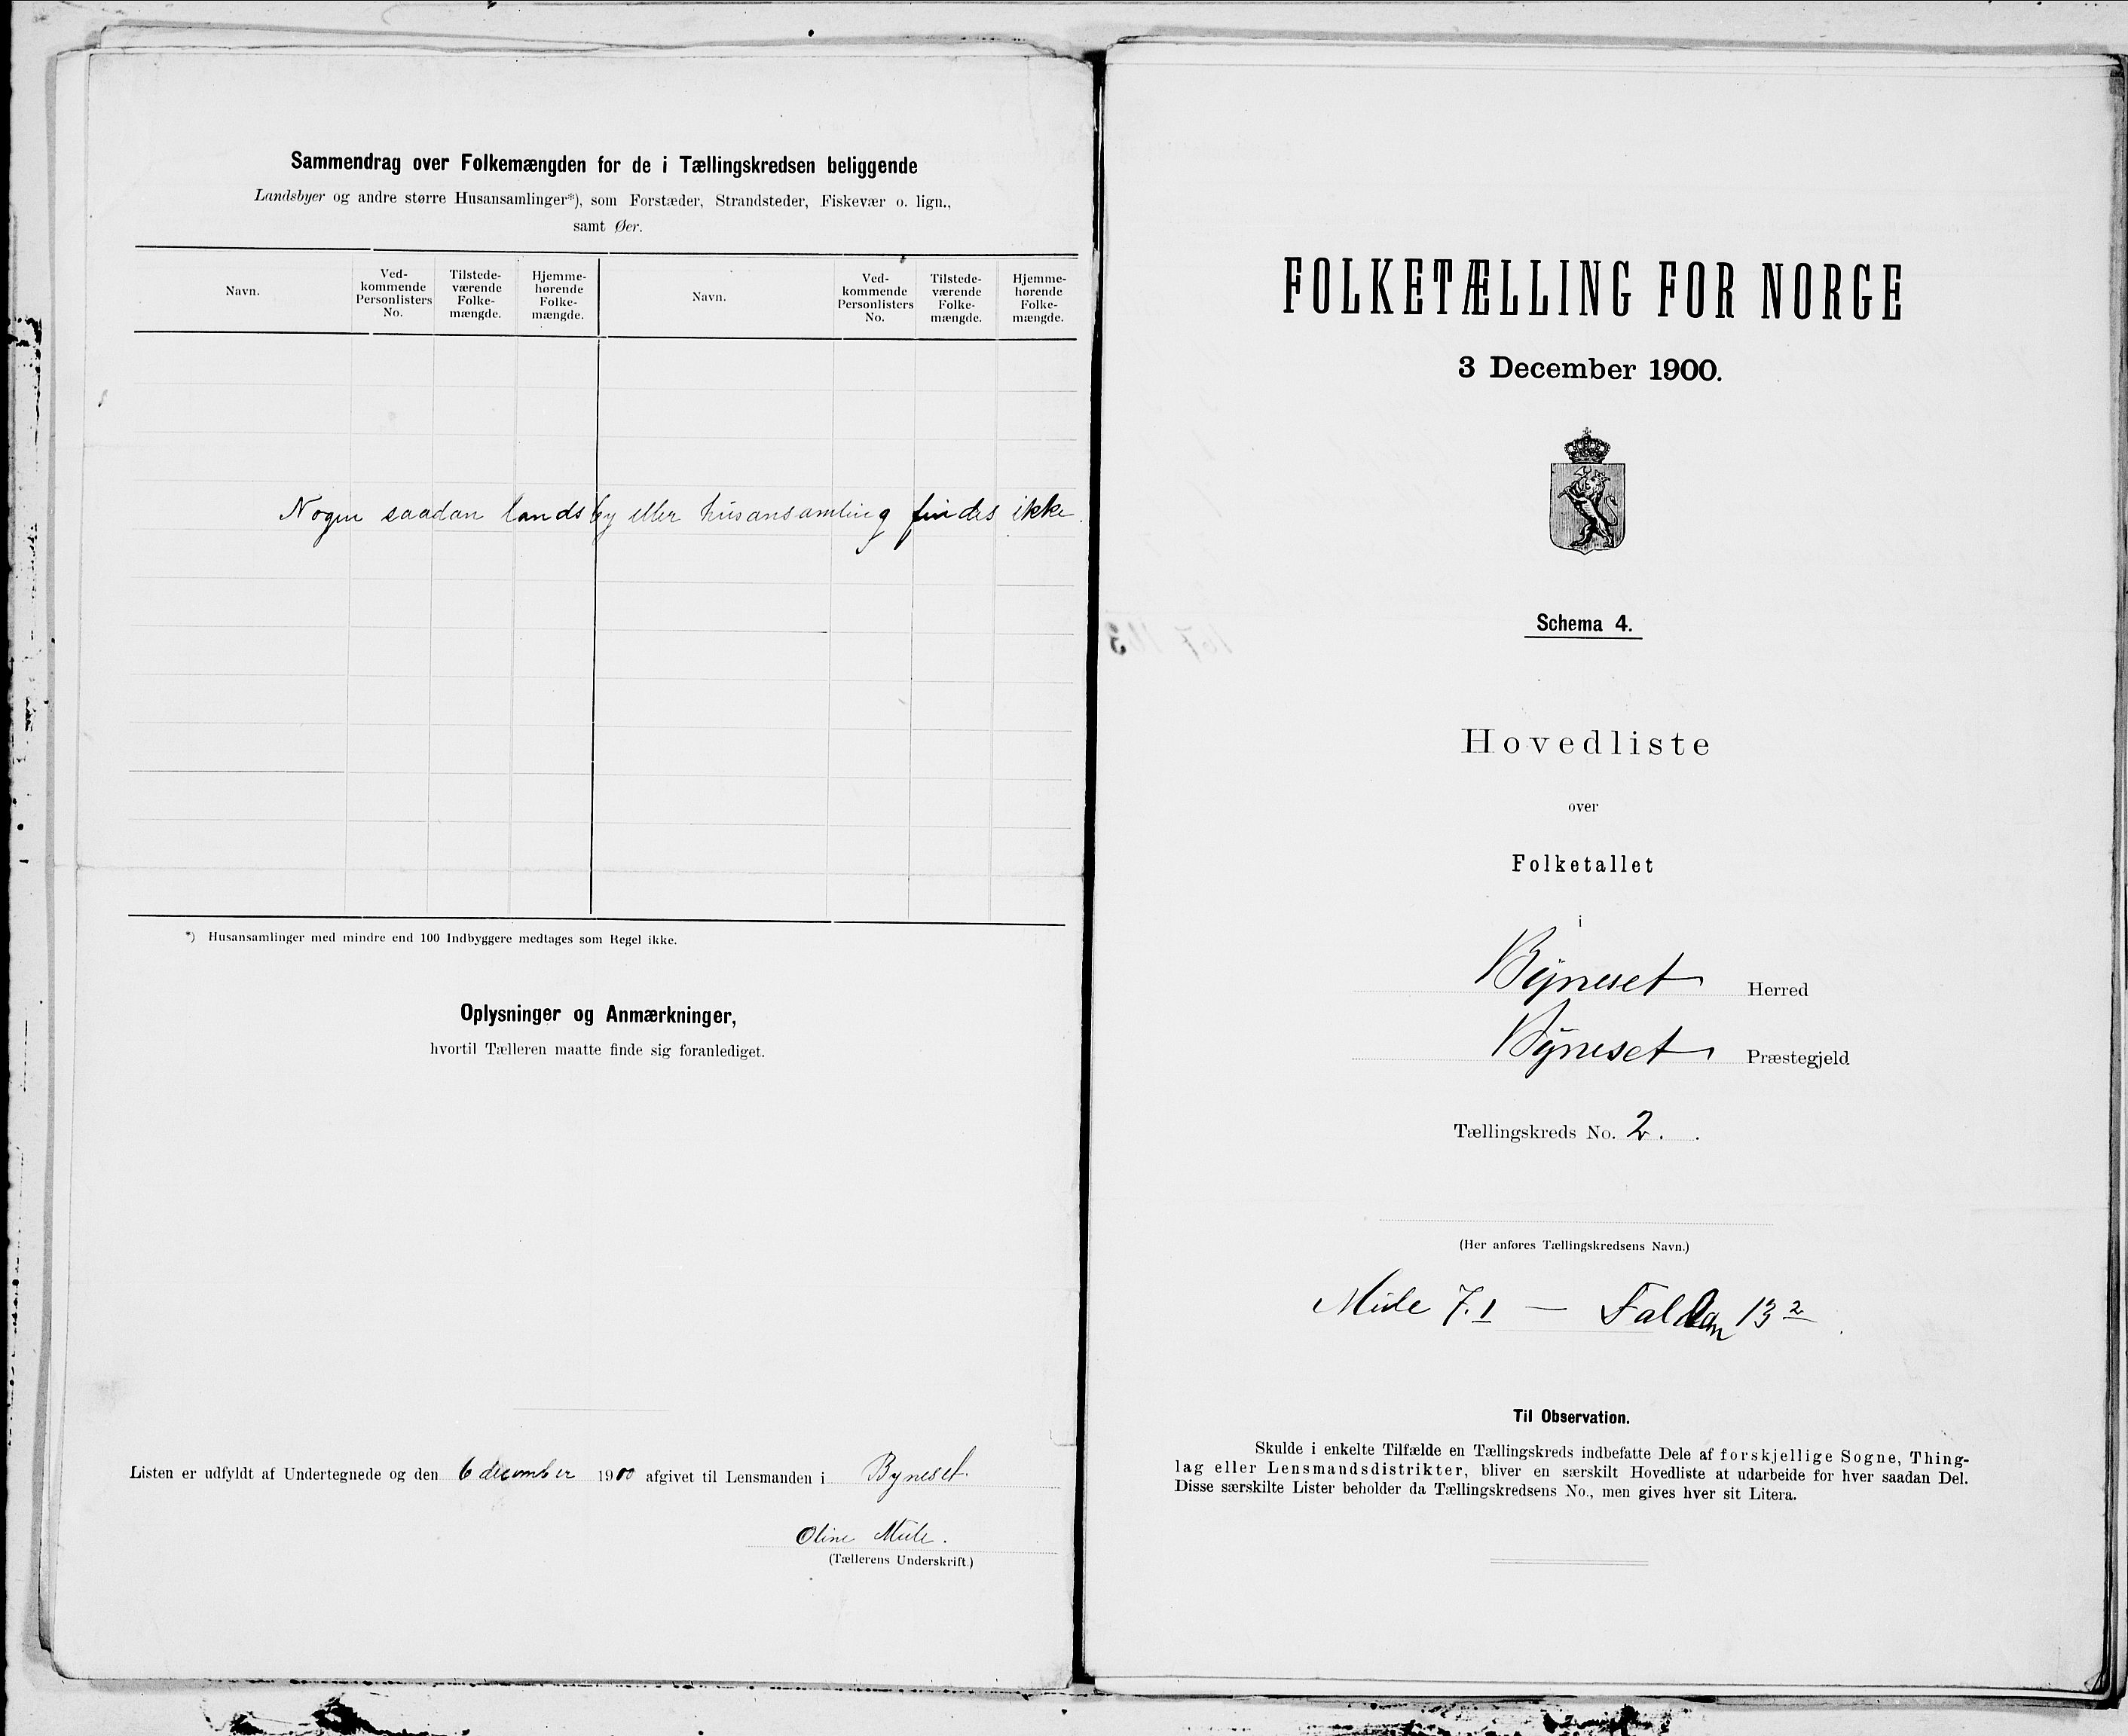 Sammendrag over Folkemængden for de i Tællingskredsen beliggende
Landsbyer og andre større Husansamlinger*), som Forstæder, Strandsteder, Fiskevær o. lign.,
samt Øer.
Navn.
Ved-
kommende
Personlisters
No.
Tilstede-
værende
Folke-
mængde.
Hjemme-
hørende
Folke-
mængde.
Navn.
Ved-
kommende
Personlisters
No.
Tilstede-
værende
Folke-
mængde.
Hjemme-
hørende
Folke-
mængde.
Nogen saadan landsby eller husansamling findes ikke.
*) Husansamlinger med mindre end 100 Indbyggere medtages som Regel ikke.
Oplysninger og Anmærkninger,
hvortil Tælleren maatte finde sig foranlediget.
Listen er udfyldt af Undertegnede og den 6 december 1900 afgivet til Lensmanden i Byneset.
Oline Mule.
(Tællerens Underskrift.)
FOLKETÆLLING FOR NORGE
3 December 1900.
Schema 4.
Hovedliste
over
Folketallet
i
Byneset Herred
Byneset Præstegjeld
Tællingskreds No. 2.
(Her anføres Tællingskredsens Navn.)
Mule 7.1 — 13 2
Til Observation.
Skulde i enkelte Tilfælde en Tællingskreds indbefatte Dele af forskjellige Sogne, Thing-
lag eller Lensmandsdistrikter, bliver en særskilt Hovedliste at udarbeide for hver saadan Del.
Disse særskilte Lister beholder da Tællingskredsens No., men gives hver sit Litera.